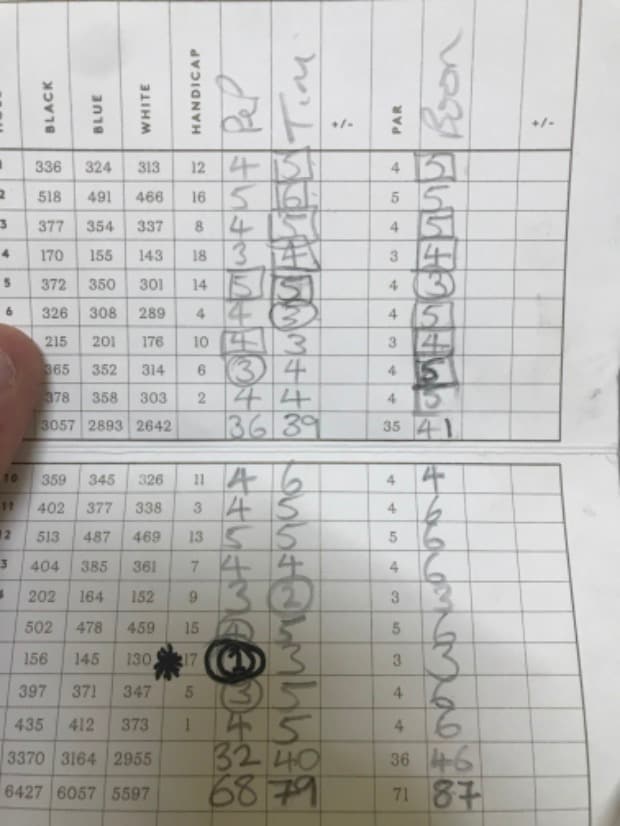 BLACK BLUE WHITE HANDICAP Tim +/- PAR +/-
1 336 324 313 12 4 5 4 5
2 518 491 466 16 5 6 5 5
3 377 354 337 8 4 5 4 5
4 170 155 143 18 3 4 3 4
5 372 350 301 14 5 5 4 3
6 326 308 289 4 4 3 4 5
215 201 176 10 4 3 3 4
365 352 314 6 3 4 4 5
378 358 303 2 4 4 4 5
3057 2893 2642 36 39 35 41
10 359 345 326 11 4 6 4 4
11 402 377 338 3 4 5 4 6
2 513 487 469 13 5 5 5 6
3 404 385 361 7 4 4 4 6
4 202 164 152 9 3 2 3 3
502 478 459 15 4 5 5 6
156 145 130 17 1 3 3 3
397 371 347 5 3 5 4 6
435 412 373 1 4 5 4 6
3370 3164 2955 32 40 36 46
6427 6057 5597 68 79 71 87